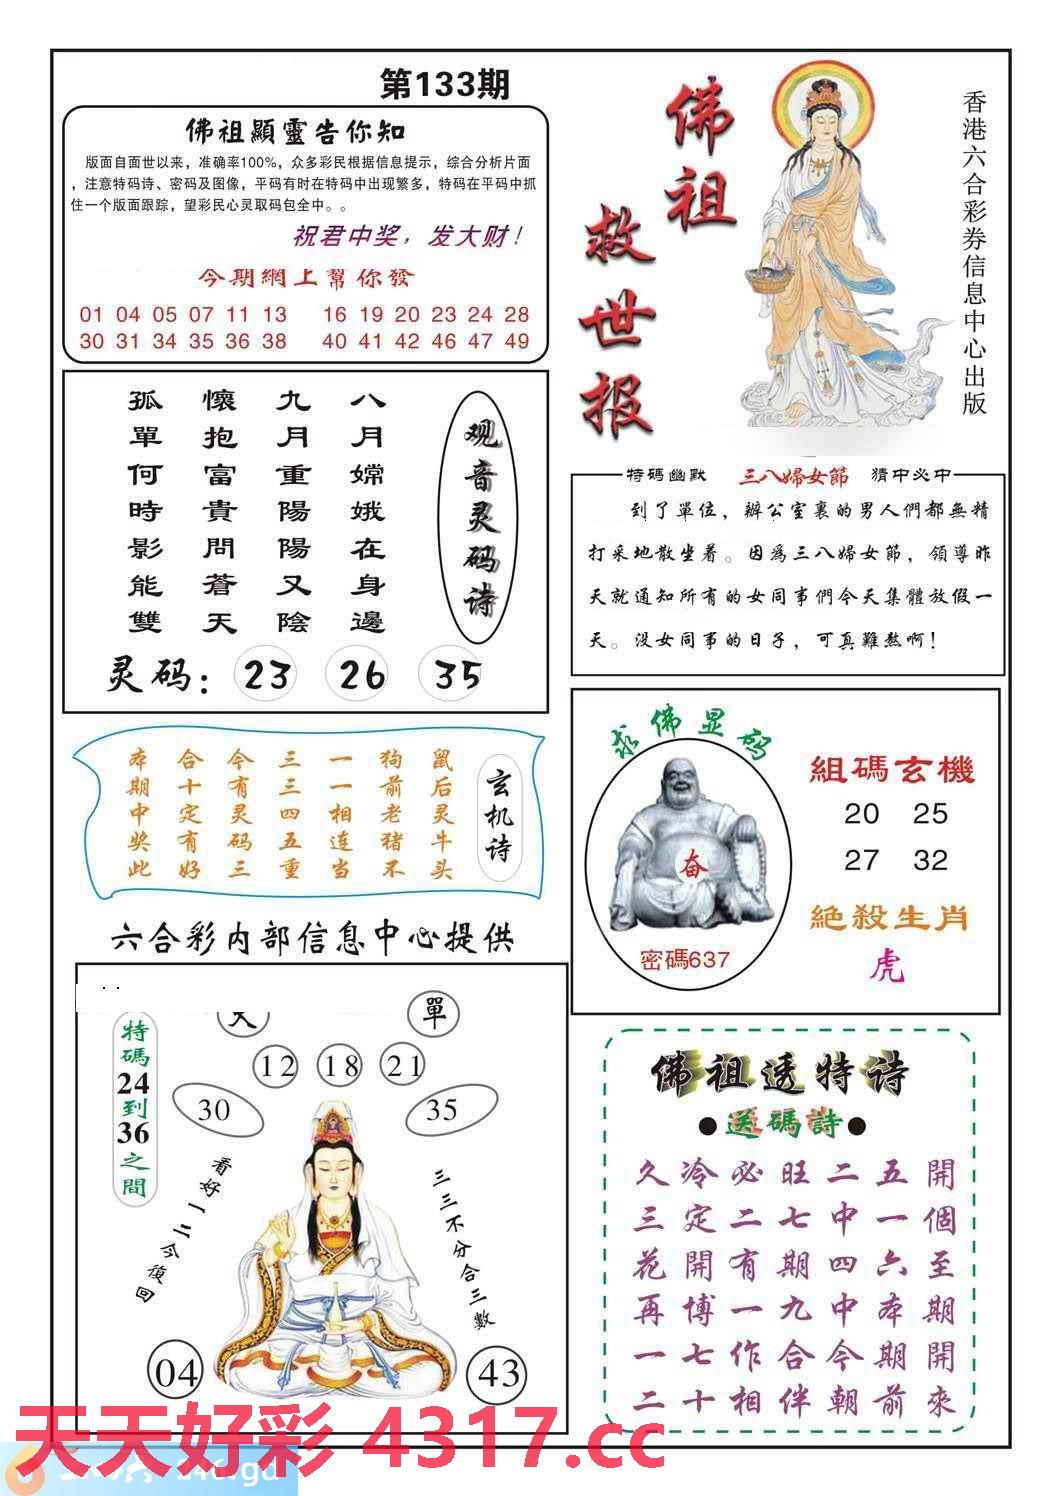 第133期
佛祖顯靈告你知
版面自面世以来，准确率100%，众多彩民根据信息提示，综合分析片面
，注意特码诗、密码及图像，平码有时在特码中出现繁多，特码在平码中抓
住一个版面跟踪，望彩民心灵取码包全中。。
祝君中奖，发大财！
今期網上幫你發
01 04 05 07 11 13 16 19 20 23 24 28
30 31 34 35 36 38 40 41 42 46 47 49
佛祖
救世报
香港六合彩券信息中心出版
观音灵码诗
八月嫦娥在身邊
九月重陽陽又陰
懷抱富貴問蒼天
孤單何時影能雙
灵码：23 26 35
特碼幽默 三八婦女節 猜中必中
到了單位，辦公室裏的男人們都無精
打采地散坐着。因爲三八婦女節，領導昨
天就通知所有的女同事們今天集體放假一
天。没女同事的日子，可真難熬啊！
玄机诗
鼠后灵牛头
狗前老猪不
一一相连当
三三四五重
今有灵码三
合十定有好
本期中奖此
求佛显码
奋
密碼637
組碼玄機
20 25
27 32
絕殺生肖
虎
六合彩内部信息中心提供
單
12 18 21
30 35
特碼24到36之間
看好一二今復回
三三不分合三數
04 43
佛祖透特诗
●送碼詩●
久冷必旺二五開
三定二七中一個
花開有期四六至
再博一九中本期
一七作合今期開
二十相伴朝前來
天天好彩 4317.cc